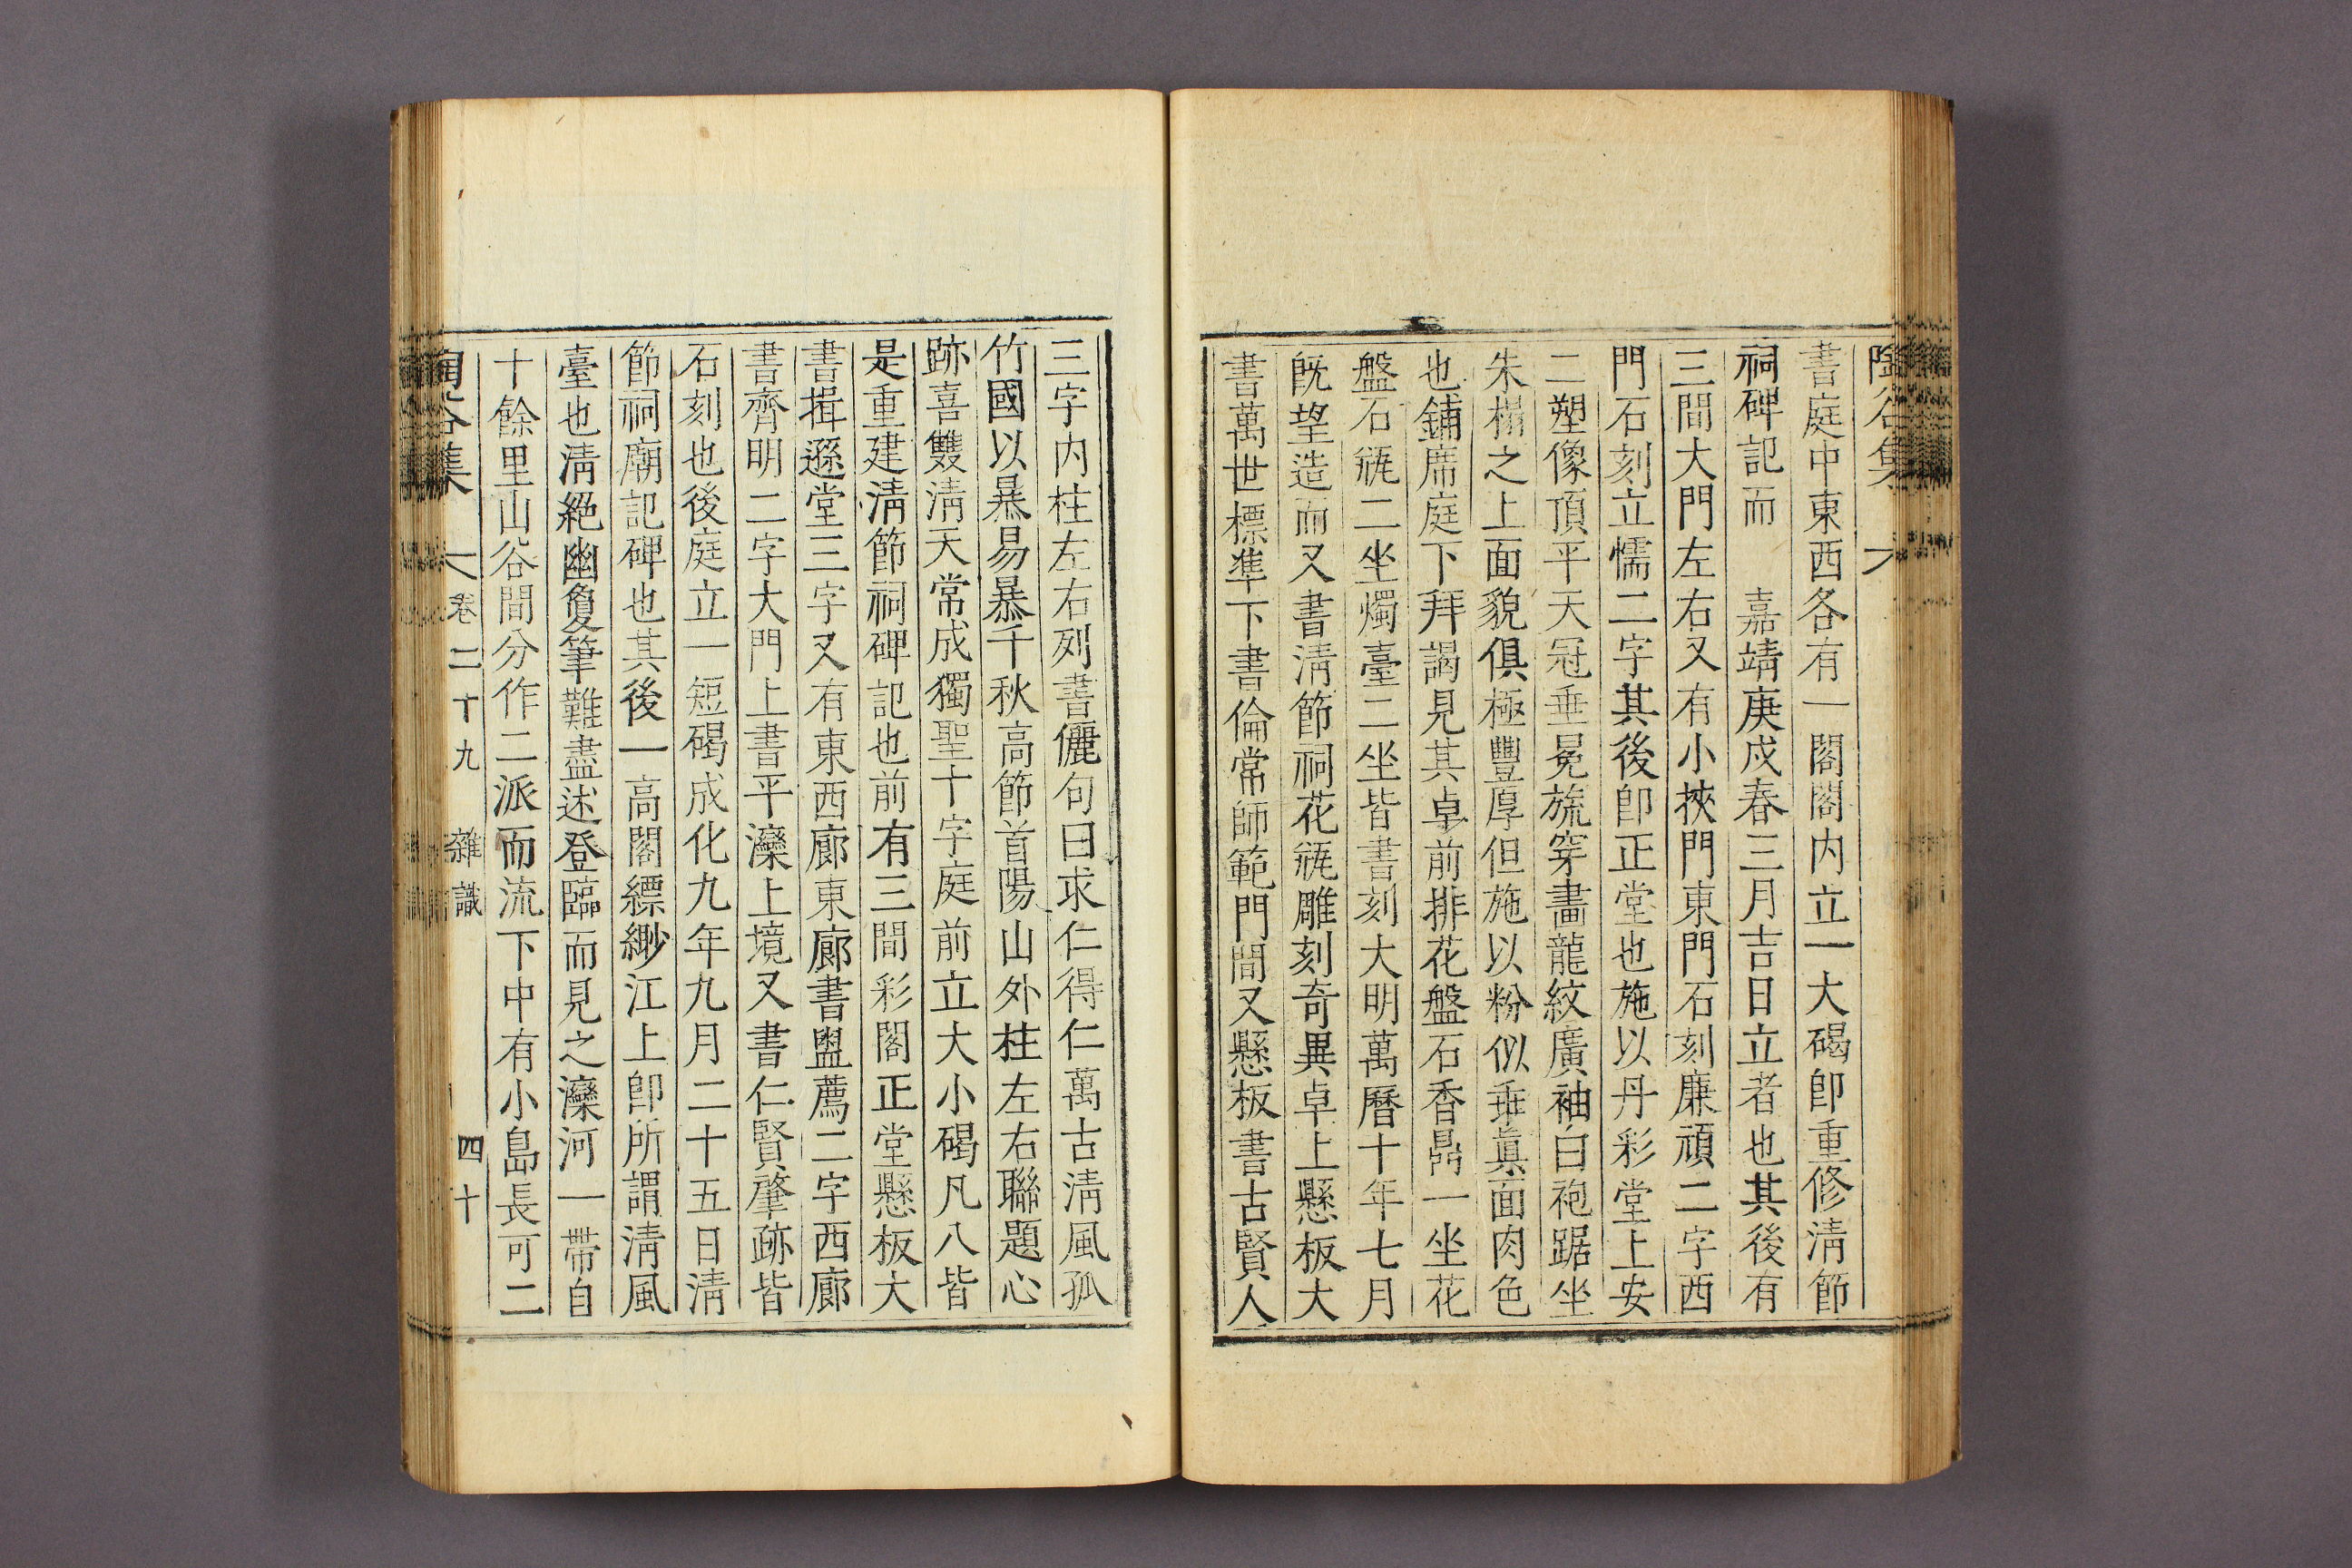 陶谷集
書庭中東西各有一閣閣内立一大碣卽重修淸節
祠碑記而 嘉靖庚戌春三月吉日立者也其後有
三間大門左右又有小挾門東門石刻廉頑二字西
門石刻立懦二字其後卽正堂也施以丹彩堂上安
二塑像頂平天冠垂冕旒穿畵龍紋廣袖白袍踞坐
朱榻之上面貌俱極豐厚但施以粉似乖眞面肉色
也鋪席庭下拜謁見其卓前排花盤石香鼎一坐花
盤石甁二坐燭臺二坐皆書刻大明萬曆十年七月
旣望造而又書淸節祠花甁雕刻奇異卓上懸板大
書萬世標準下書倫常師範門間又懸板書古賢人
三字内柱左右列書儷句曰求仁得仁萬古淸風孤
竹國以暴易暴千秋高節首陽山外柱左右聯題心
跡喜雙淸天常成獨聖十字庭前立大小碣凡八皆
是重建淸節祠碑記也前有三間彩閣正堂懸板大
書揖遜堂三字又有東西廊東廊書盥薦二字西廊
書齊明二字大門上書平灤上境又書仁賢肇跡皆
石刻也後庭立一短碣成化九年九月二十五日淸
節祠廟記碑也其後一高閣縹緲江上卽所謂淸風
臺也淸絶幽敻筆難盡述登臨而見之灤河一帶自
十餘里山谷間分作二派而流下中有小島長可二
陶谷集 卷二十九 雜識 四十